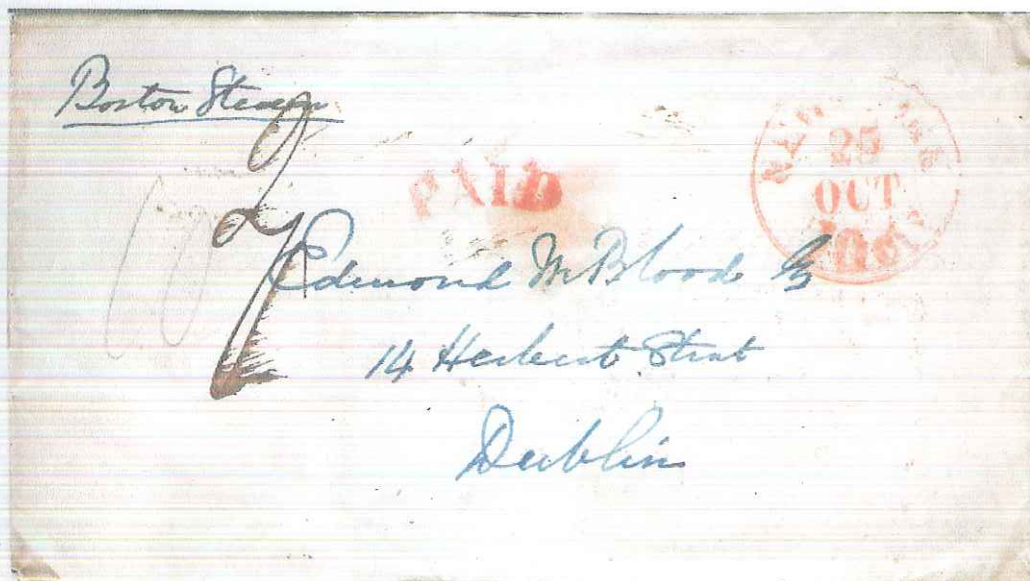 Boston Steamer
PAID
NEW YORK
25
OCT
10cts
Edmond W Blood Esq
14 Herbert Street
Dublin